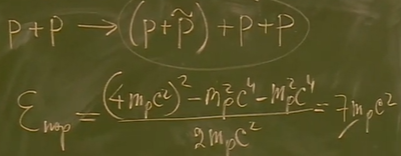 p + p → (p + p̃) + p + p
ℰ_пор = ((4m_pc²)² - m_p²c⁴ - m_p²c⁴) / (2m_pc²) = 7m_pc²